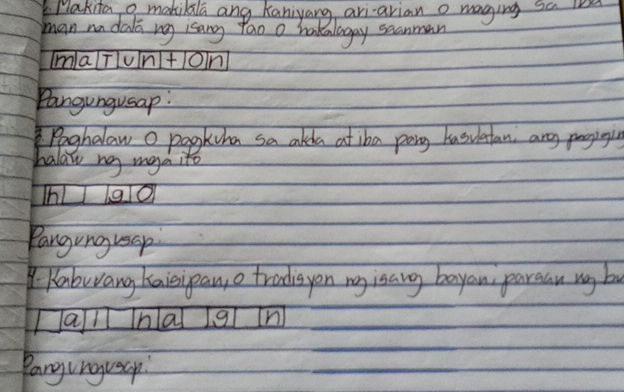 2. Makita o makilala ang kaniyang ari-arian o maging sa iba
man na dala ng isang tao o nakalagay saanman
m a T u n t O n
Pangungusap:
3. Paghalaw o pagkuha sa akda at iba pang kasulatan, ang pagigin
halaw ng mga ito
h g o
Pangungusap:
4. Kabuuang kaisipan, o tradisyon ng isang bayan, paraan ng bu
a l n a g n
Pangungusap: